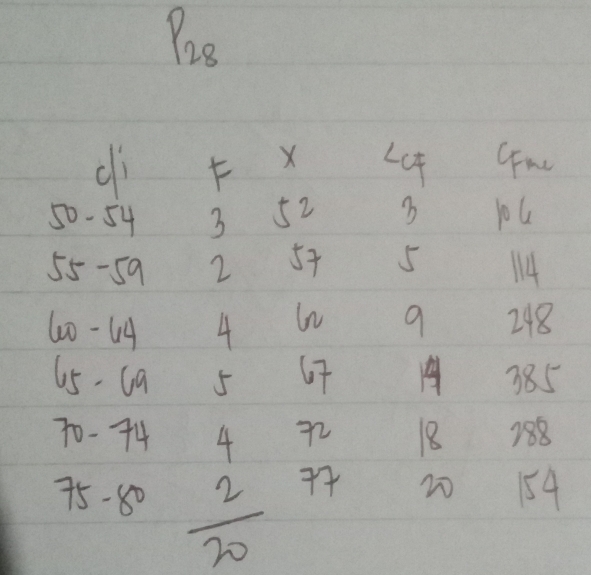 P28
c/i F X <cf
50-54 3 52 3 106
55-59 2 57 5 114
60-64 4 62 9 248
65-69 5 67 14 385
70-74 4 72 18 288
75-80 2 77 20 154
20